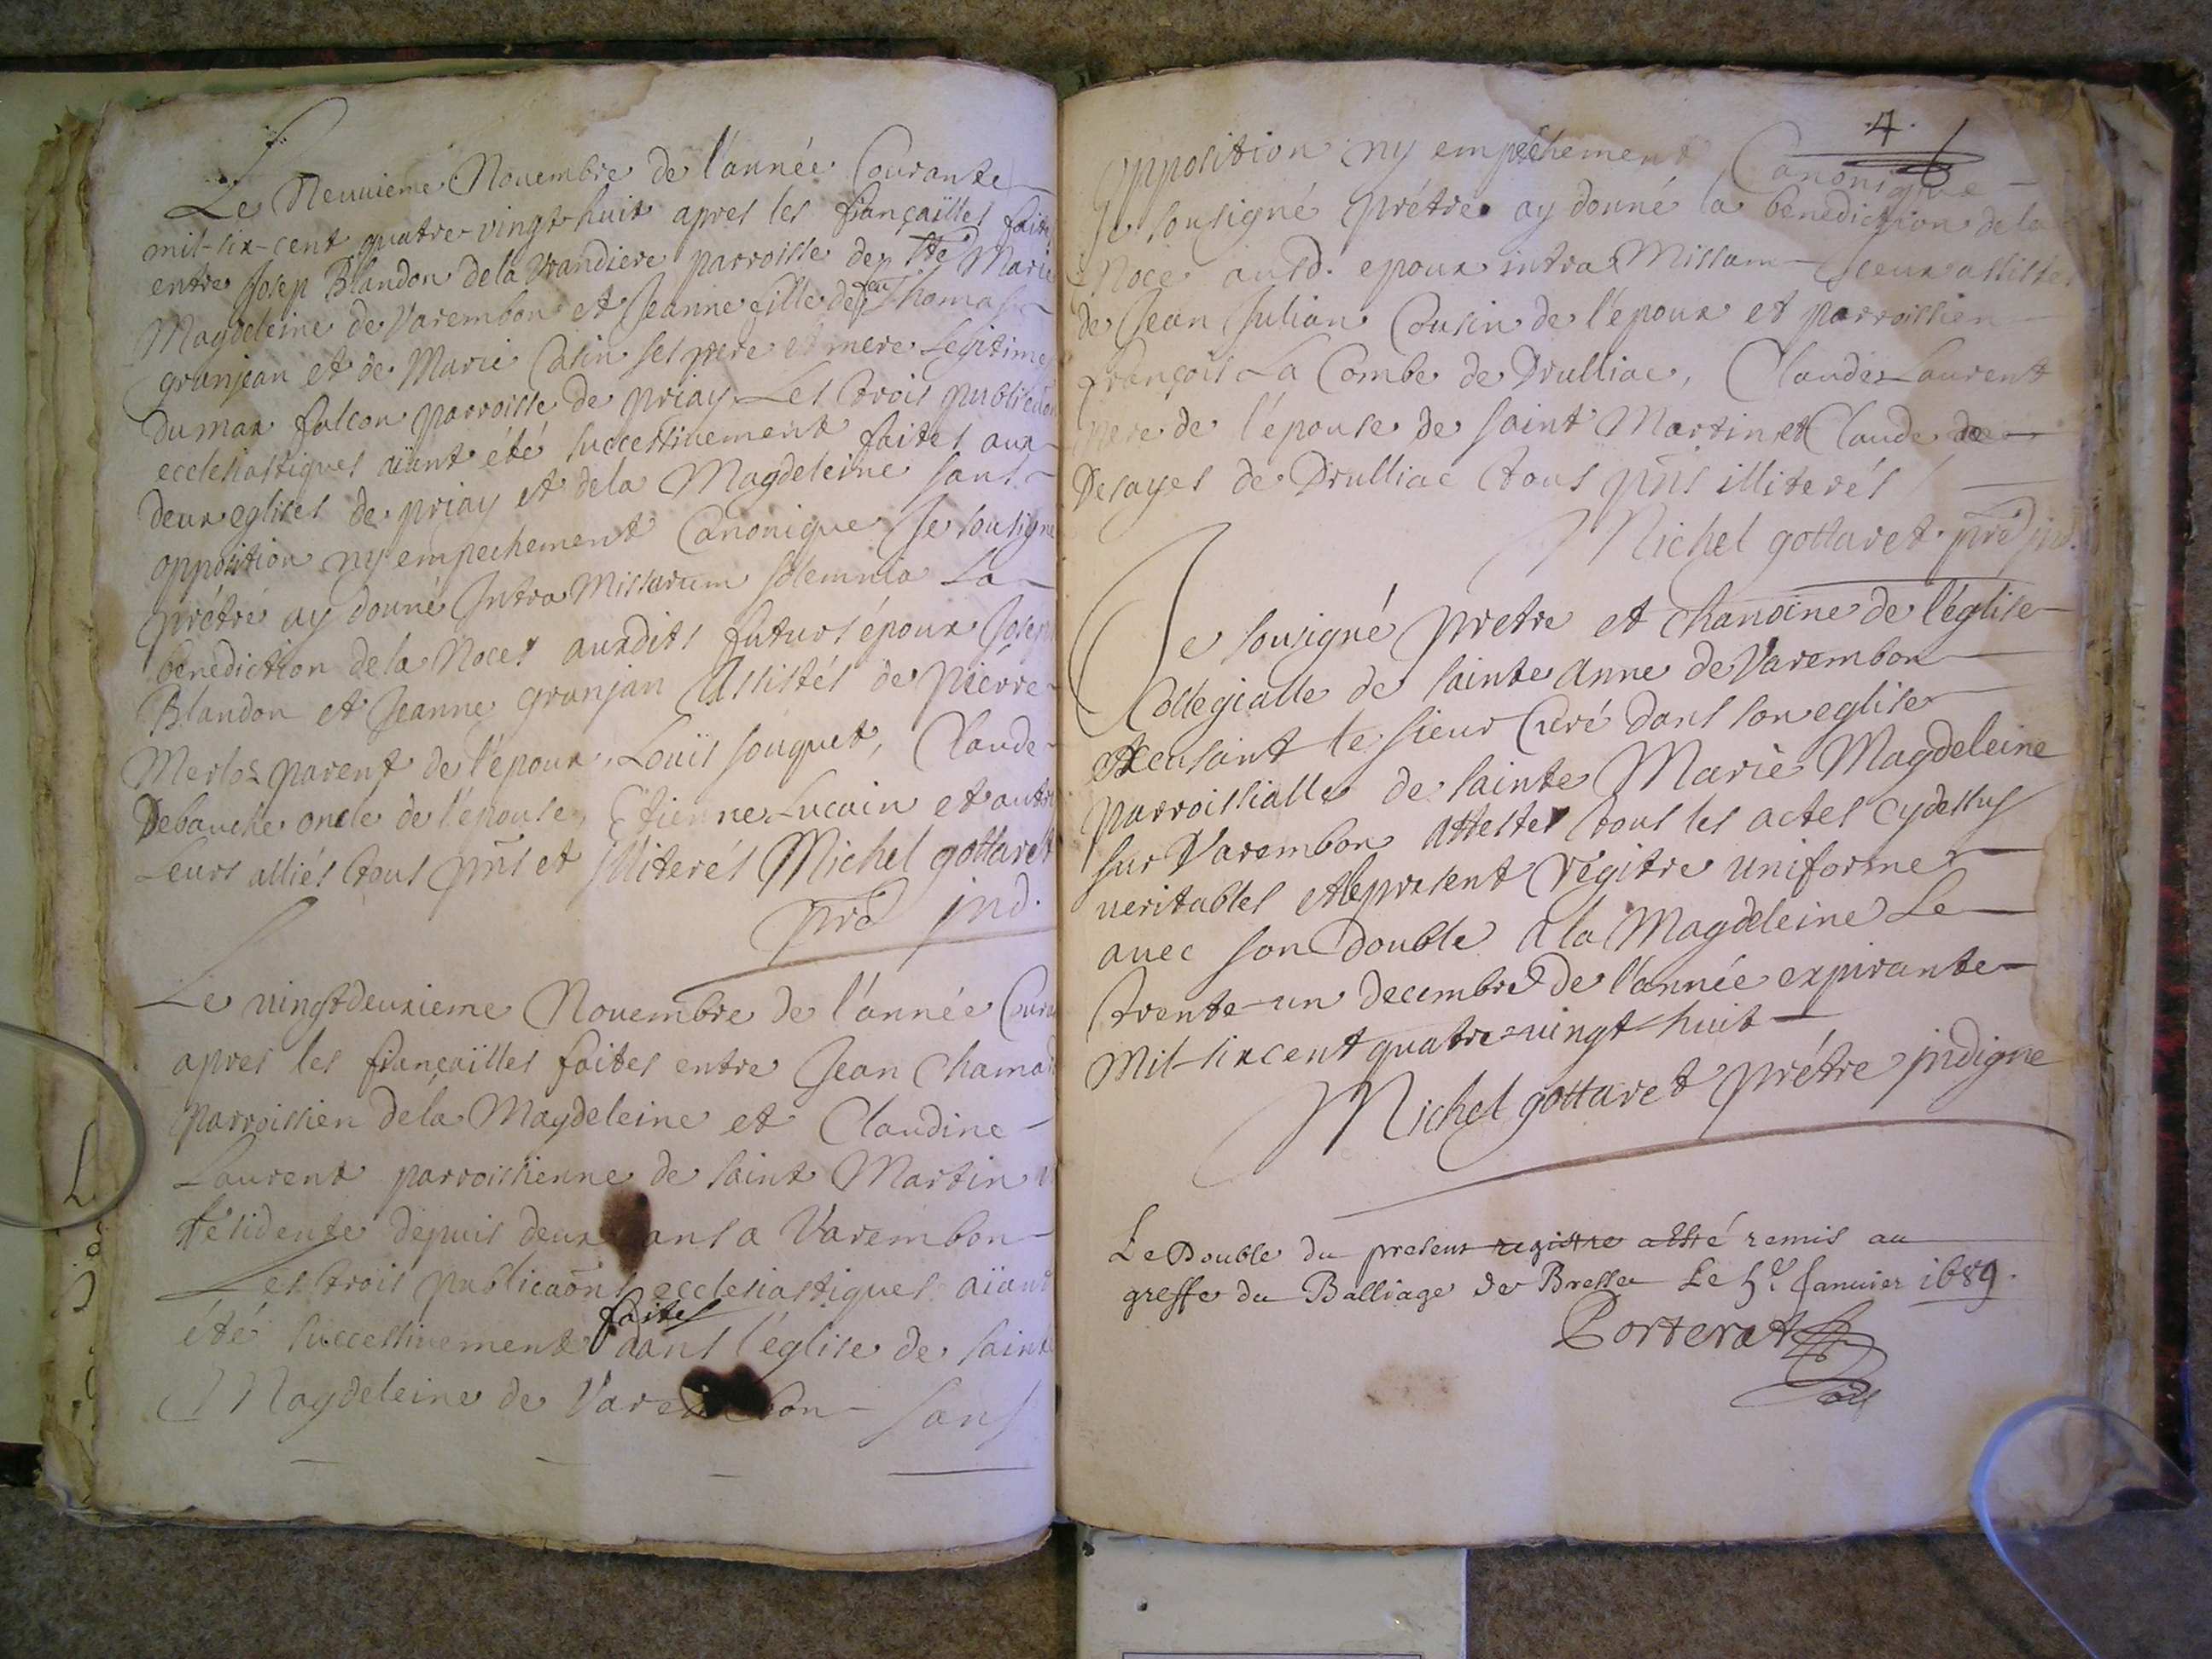 Le Neuuieme Nouembre de l'année Courante
mil-six-cent quatre vingt-huit apres les fiançailles faite
entre Josep Blandon de la Brandiere parroisse de Ste Marie
Magdeleine de Varembon et Jeanne fille de feu Thomas
granjean et de Marie Casin ses pere et mere Legitime
du max falcon parroisse de priay Les trois publicaõn
ecclesiastiques aïant été successiuement faites aux
deux eglises de priay et dela Magdeleine sans
opposition ny empechement Canonique Je sousigné
prétre ay donné Intra Missarum solemnia La
benediction de la Noces auxdits futurs époux Joseph
Blandon et Jeanne granjan Assistés de Pierre
Merloz parent de l'epoux, Louïs souquet, Claude
Debauche oncle de l'epouse, Etienne Lucain et autre
Leurs alliés tous pñs et illiterés Michel gottaret
pre ind.
Le uingt deuxieme Nouembre de l'année Coura
apres les fiançaïlles faites entre Jean Chamar
parroissien dela Magdeleine et Claudine
Laurent parroissienne de saint Martin
résidente depuis deux ans a Varembon
Les trois publicaõns ecclesiastiques aïant
été successiuement faites dans l'église de sainte
Magdeleine de Varembon sans
4.
opposition ny empéchement Canonique
Je sousigné prétre ay donné la benediction de la
Noce ausd. epoux intra Missam Iceux assistés
de Jean Julian Cousin de l'époux et parroissien
françois La Combe de Drulliac, Claude Laurent
pere de l'épouse de saint Martin et Claude de
Desayes de Drulliac tous pñs illiterés
Michel gottaret pre ind.
Je sousigné pretre et chanoine de l'église
Collegialle de sainte Anne de Varembon
excusant le sieur Curé dans son eglise
parroissialle de sainte Marie Magdeleine
sur Varembon Atteste tous les actes cydessus
ueritables et le present régitre uniforme
auec son double A la Magdeleine Le
trente-un decembre de l'année expirante
Mil-sixcent quatre-uingt-huit
Michel gottaret prétre indigne
Le Double du present registre a esté remis au
greffe du Balliage de Bresse Le 5e Januier 1689.
Porterat